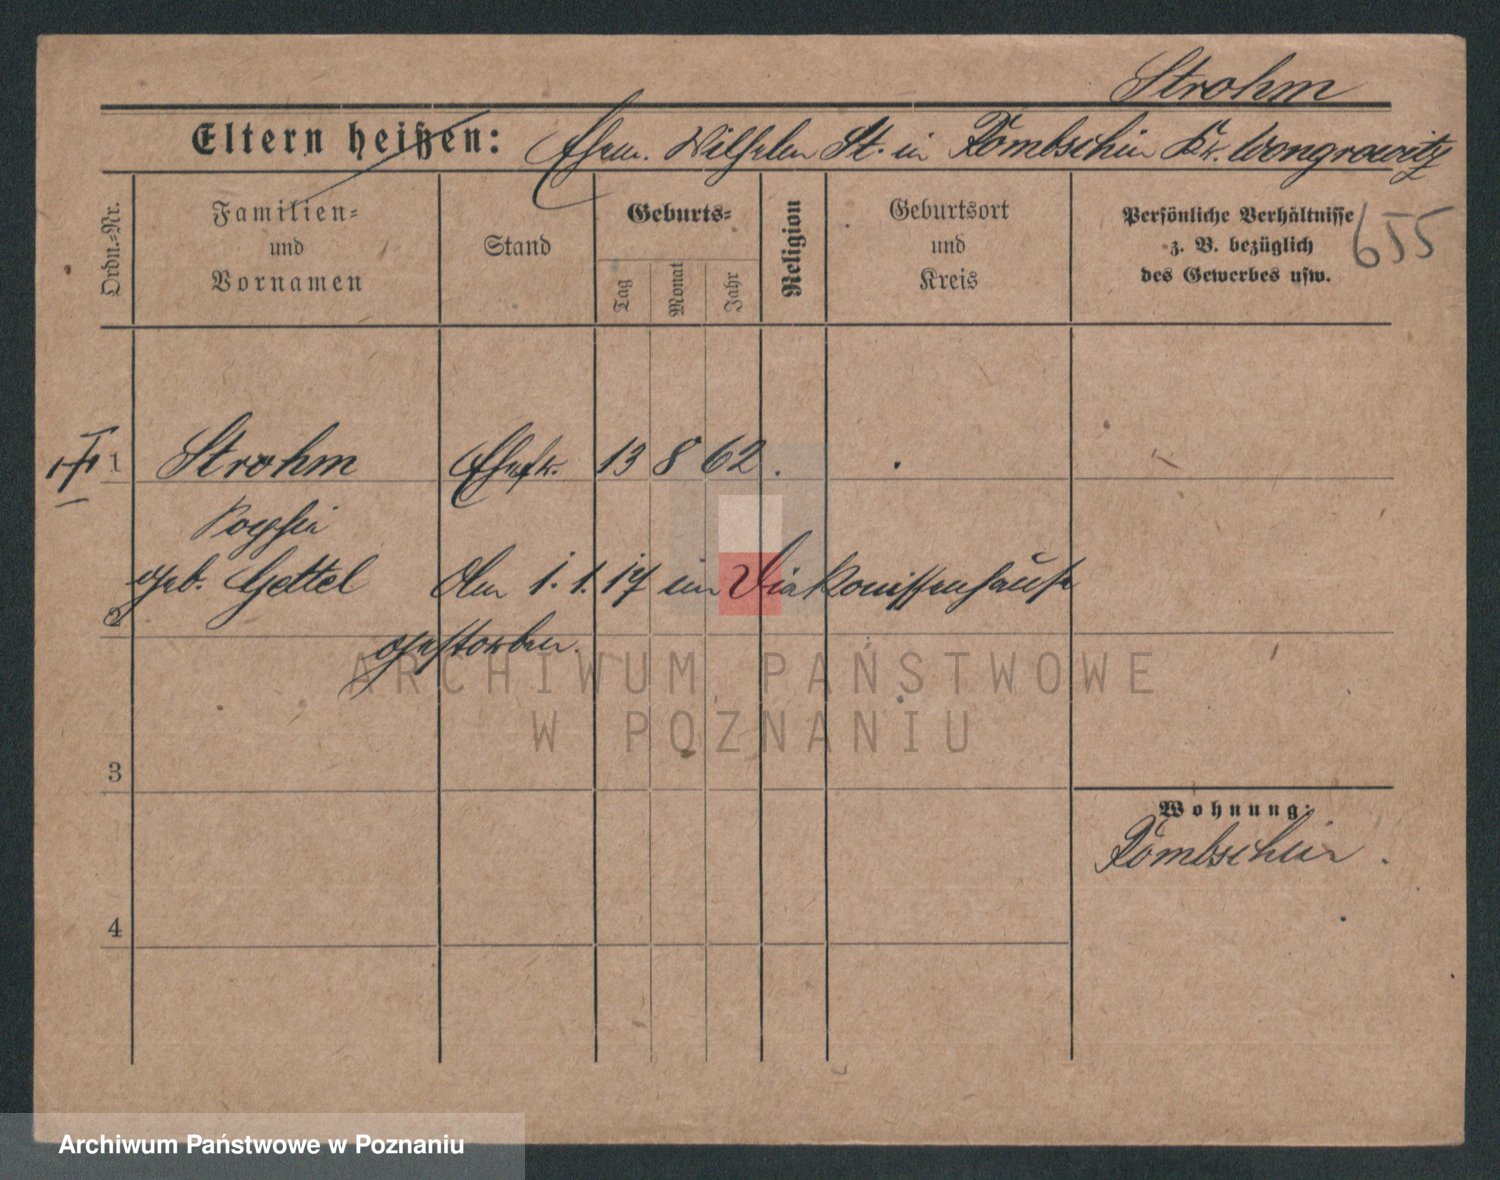 Strohm
Eltern heißen: Ehem. Wilhelm St. in Kr. Wongrowitz
Ordn.=Nr.
Familien=
und
Vornamen
Stand
Geburts=
Tag
Monat
Jahr
Religion
Geburtsort
und
Kreis
Persönliche Verhältnisse
z. B. bezüglich
des Gewerbes usw.
655
1 Strohm Ehefr. 13 8 62.
geb. Gettel Am 1.1.17 im Diakonissenhause
2 gestorben.
ARCHIWUM PAŃSTWOWE
W POZNANIU
3
Wohnung:
4
Archiwum Państwowe w Poznaniu